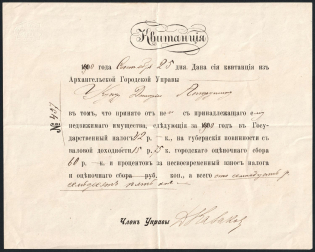 Квитанція
1900 года Сентября 25 дня. Дана сія квитанція изъ
Архангельской Городской Управы
въ томъ, что принято отъ него съ принадлежащаго ему
недвижимаго имущества, слѣдующія за 1900 годъ въ Госу-
дарственный налогъ р. к., на губернскія повинности съ
валовой доходности 15 р. 25 к. городского оцѣночнаго сбора
60 р. — к. и процентовъ за несвоевременный взносъ налога
и оцѣночнаго сбора — руб. коп., а всего сто
семьдесят пять коп.
Членъ Управы
№ 497